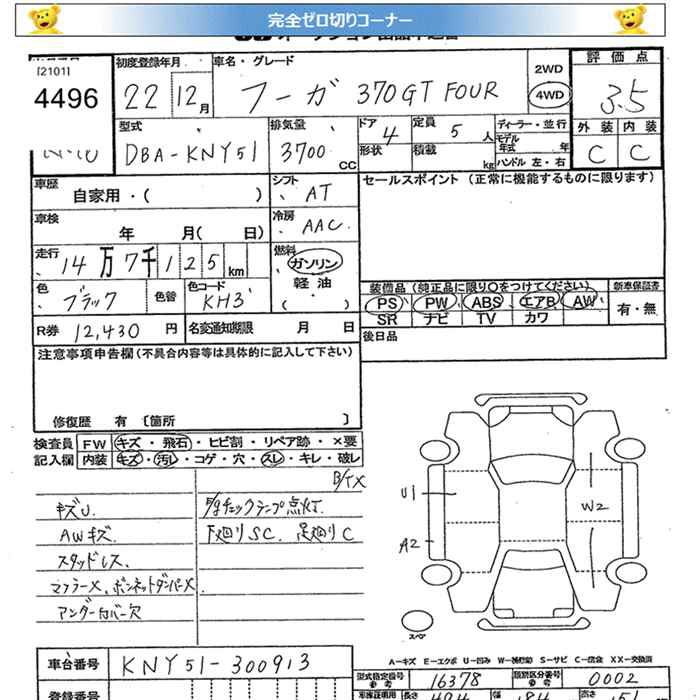 完全ゼロ切りコーナー
[2101]
4496
初度登録年月 車名・グレード
22 12月 フーガ 370GT FOUR
2WD
4WD
評価点
3.5
外装 内装
C C
型式 排気量 ドア 定員 ディーラー・並行
DBA-KNY51 3700CC 4 5人 モデル年式 年
形状 積載 kg ハンドル 左・右
車歴 自家用・( )
シフト AT
セールスポイント (正常に機能するものに限ります)
車検 年 月( 日)
冷房 AAC
走行 14万7千125km
燃料 ガソリン
軽油
( )
色 ブラック 色替 色コード KH3
装備品(純正品に限り○をつけてください) 新車保証書
PS PW ABS エアB AW 有・無
SR ナビ TV カワ
R券 12,430円 名変通知期限 月 日
後日品
注意事項申告欄(不具合内容等は具体的に記入して下さい)
修復歴 有 [箇所 ]
検査員 FW キズ・飛石・ヒビ割・リペア跡・×要
記入欄 内装 キズ・汚レ・コゲ・穴・スレ・キレ・破レ
キズU.
チェックランプ点灯.
AWキズ.
下廻りSC. 足廻りC
スタッドレス.
マフラーX、ボンネットダンパーX
アンダーカバー欠
U1
W2
A2
スペア
A-キズ E-エクボ U-凹み W-補修跡 S-サビ C-腐食 XX-交換済
車台番号 KNY51-300913
型式指定番号 16378 類別区分番号 0002
登録番号